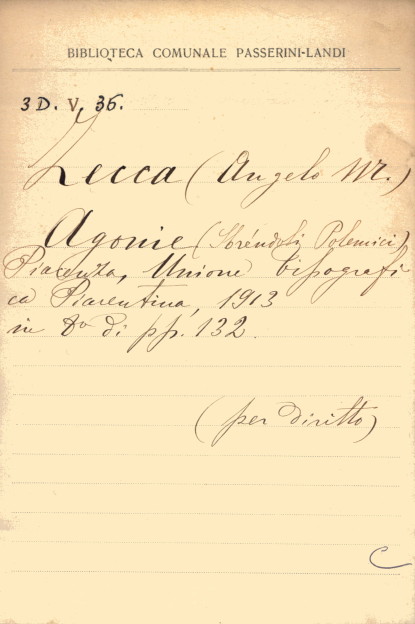 BIBLIOTECA COMUNALE PASSERINI-LANDI
3D. V, 36.
Zecca (Angelo M.)
Agonie (Sbréndoli Polemici)
Piacenza, Unione tipografi
ca Piacentina, 1913
in 8º di pp. 132.
(per diritto)
C